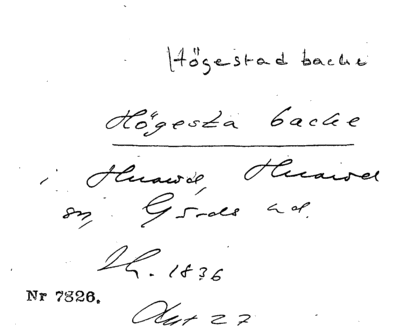 Högestad backe
Högesta backe
i Huaröd, Huaröd
sn, Gärds hd.
Lh. 1836
Nr 7826.
Akt 27